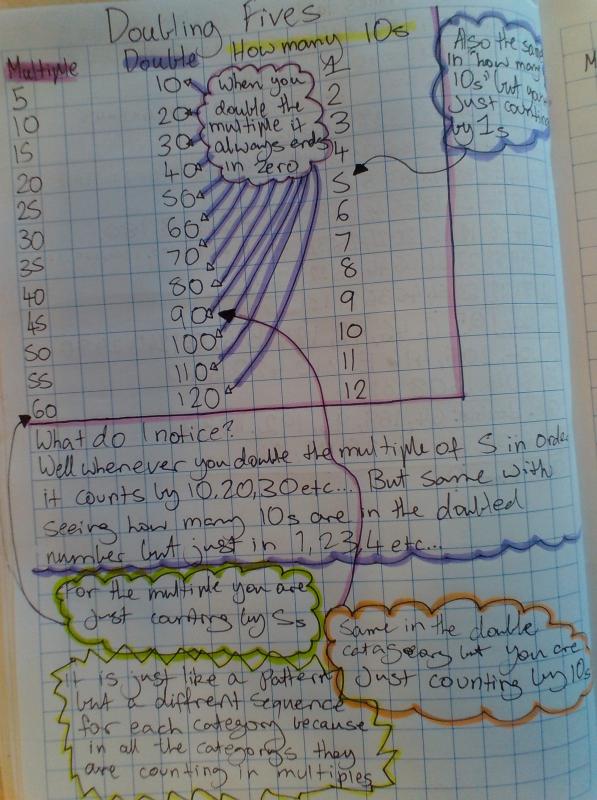 Doubling Fives
Multiple Double How many 10s
5 10 1
10 20 2
15 30 3
20 40 4
25 50 5
30 60 6
35 70 7
40 80 8
45 90 9
50 100 10
55 110 11
60 120 12
When you
double the
multiple it
always ends
in zero
Also the same
in "how many
10s" but
just counting
by 1s
What do I notice?
Well whenever you double the multiple of 5 in order
it counts by 10,20,30 etc... But same with
seeing how many 10s are in the doubled
number but just in 1,2,3,4 etc...
For the multiple you are
just counting by 5s
Same in the double
catagoary but you are
Just counting by 10s
it is just like a pattern
but a diffrent sequence
for each category because
in all the categorys they
are counting in multiples
M